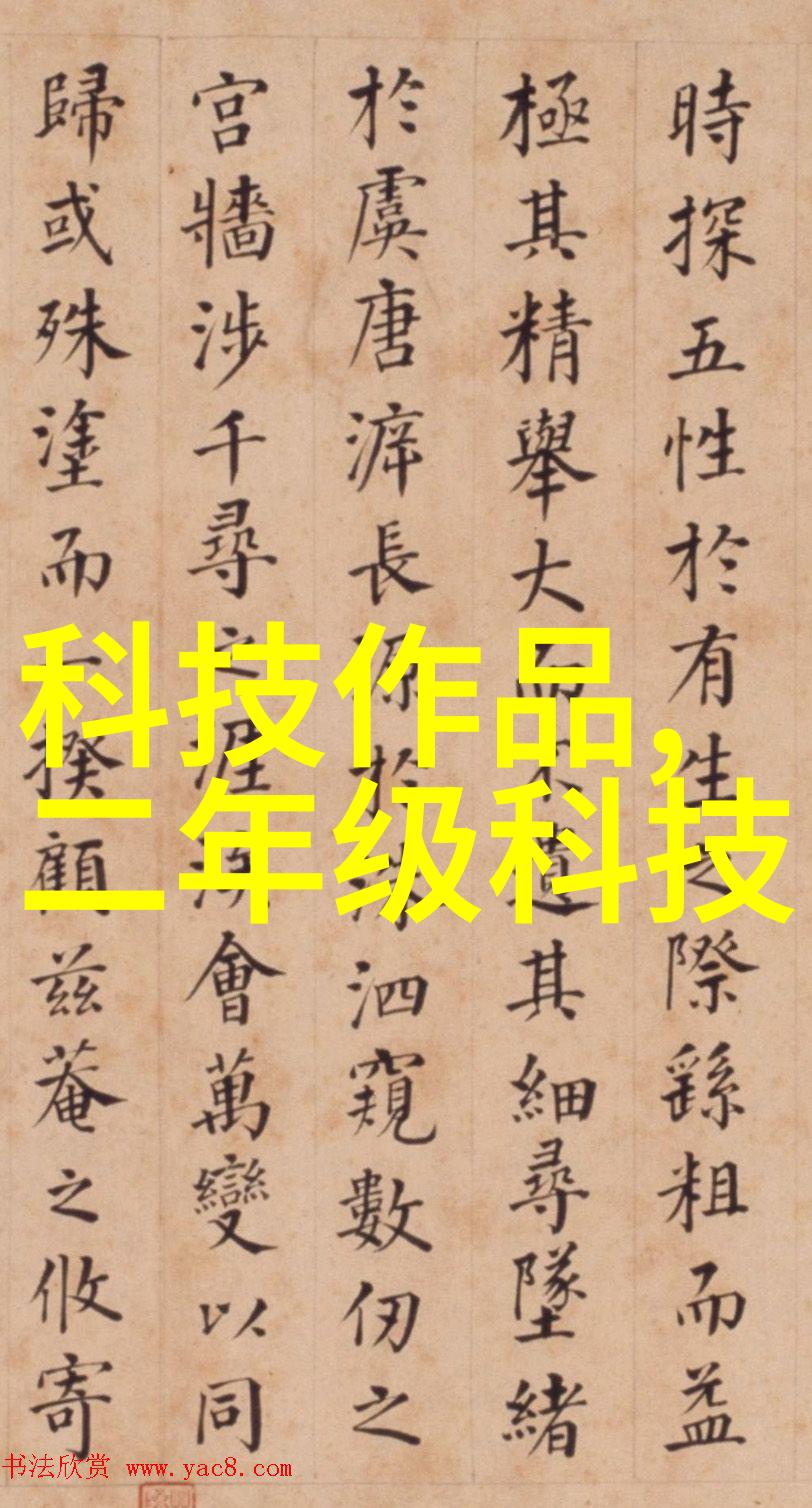 時探五性於有生之際繇粗而益
極其精舉大而不遺其細尋墜緒
於虞唐濬長源於洙泗窺數仞之
宫牆涉千尋之涯涘會萬變以同
歸或殊塗而一揆顧兹菴之攸寄
科技作品,
二年级科技
书法欣赏 www.yac8.com